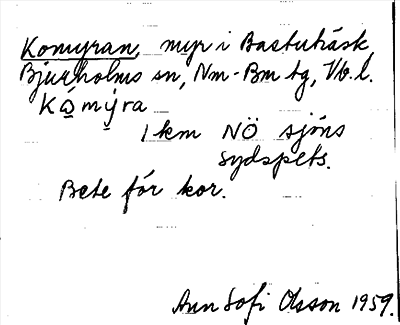 Komyran, myr i Bastuträsk,
Bjurholms sn, Nm-Bm tg, Vb. l.
Kọ́mỵ́ra
1 km NÖ sjöns
sydspets.
Bete för kor.
Ann Sofi Olsson 1959.